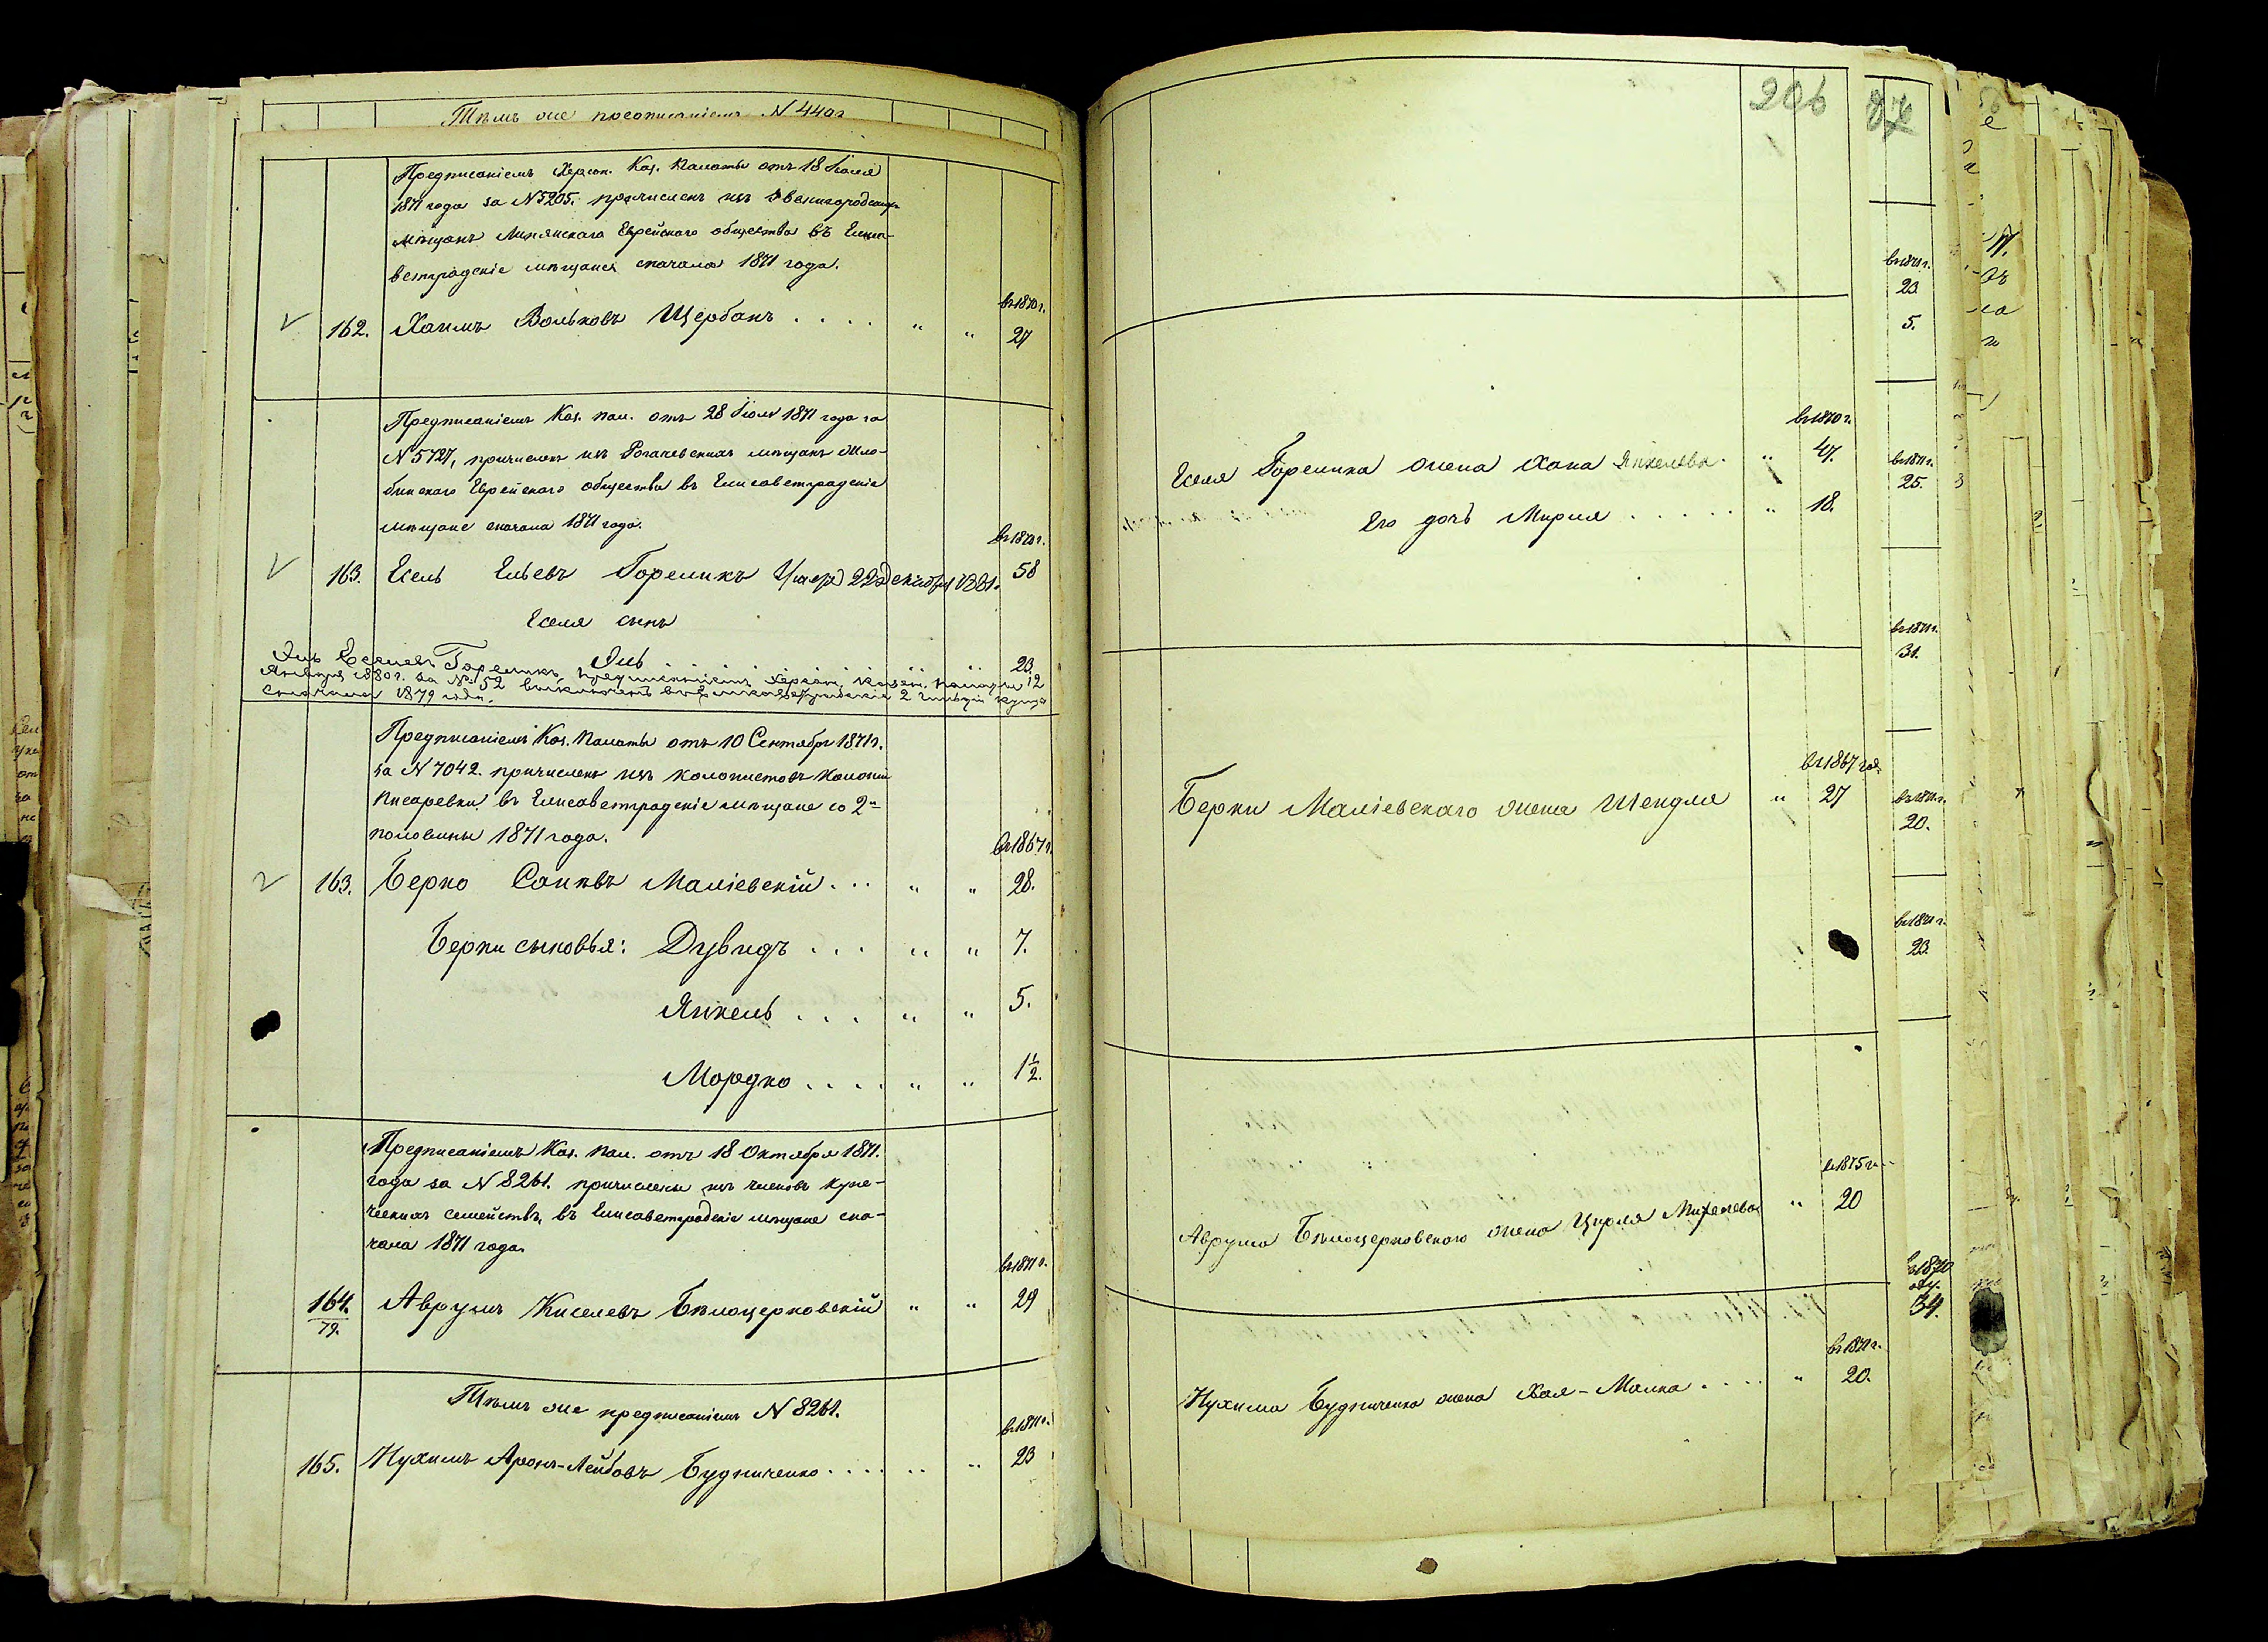 Тѣмъ же предписаніемъ N 4402
Предписаніемъ Херсон. Каз. Палаты отъ 18 Іюля
1871 года за N 5205. причисленъ изъ Звенигородскихъ
мѣщанъ Лысянскаго Еврейскаго общества въ Елиса-
ветградскіе мѣщане сначала 1871 года.
въ 1870 г.
162. Хаимъ Вольковъ Щербанъ . . . . " " 27
Предписаніемъ Каз. Пал. отъ 28 Іюля 1871 года за
N 5727, причисленъ изъ Рогачевскихъ мѣщанъ Жло-
бинскаго Еврейскаго общества въ Елисаветградскіе
мѣщане сначала 1871 года.
въ 1870 г.
163. Есель Ельевъ Гореликъ Умер 22 декабря 1881. 58
Еселя сынъ
Эль . . . . . " " 23.
Эль Еселевъ Гореликъ, предписаніемъ Херсон. Казен. Палаты 12
Января 1880 г. за №52 выключенъ въ Елисаветградскіе 2 гильдіи купцы
сначала 1879 года.
Предписаніемъ Каз. Палаты отъ 10 Сентября 1871 г.
за N 7042. причисленъ изъ колонистовъ колоніи
Писаревки въ Елисаветградскіе мѣщане со 2й
половины 1871 года.
въ 1867 г.
163. Берко Малiевскій . . . " " 28.
Берки сыновья: Дувидъ . . . " " 7.
Янкель . . . " " 5.
Мордко . . . . " " 1½.
Предписаніемъ Каз. Пал. отъ 18 Октября 1871.
года за N 8261. причислены изъ членовъ купе-
ческихъ семействъ, въ Елисаветградскіе мѣщане сна-
чала 1871 года.
въ 1871 г.
164. Аврумъ Киселевъ Бѣлоцерковскій " " 29
79.
Тѣмъ же предписаніемъ N 8261.
въ 1871 г.
165. Нухимъ Аронъ-Лейбовъ Будниченко . . . . " " 23
206
въ 1870 г.
Еселя Горелика жена Хана Янкелева. " 47.
Его дочь Мирля . . . . . " 18.
въ 1867 год.
Берки Малiевскаго жена Шендля " 27
въ 1875 г.
Аврума Бѣлоцерковскаго жена Цирля Михелева " 20
въ 1871 г.
Нухима Будниченка жена Хая-Малка . . . . " 20.
въ 1871 г.
23.
5.
въ 1871 г.
25.
въ 1871 г.
31.
въ 1871 г.
20.
въ 1871 г.
23.
в 1870
34.